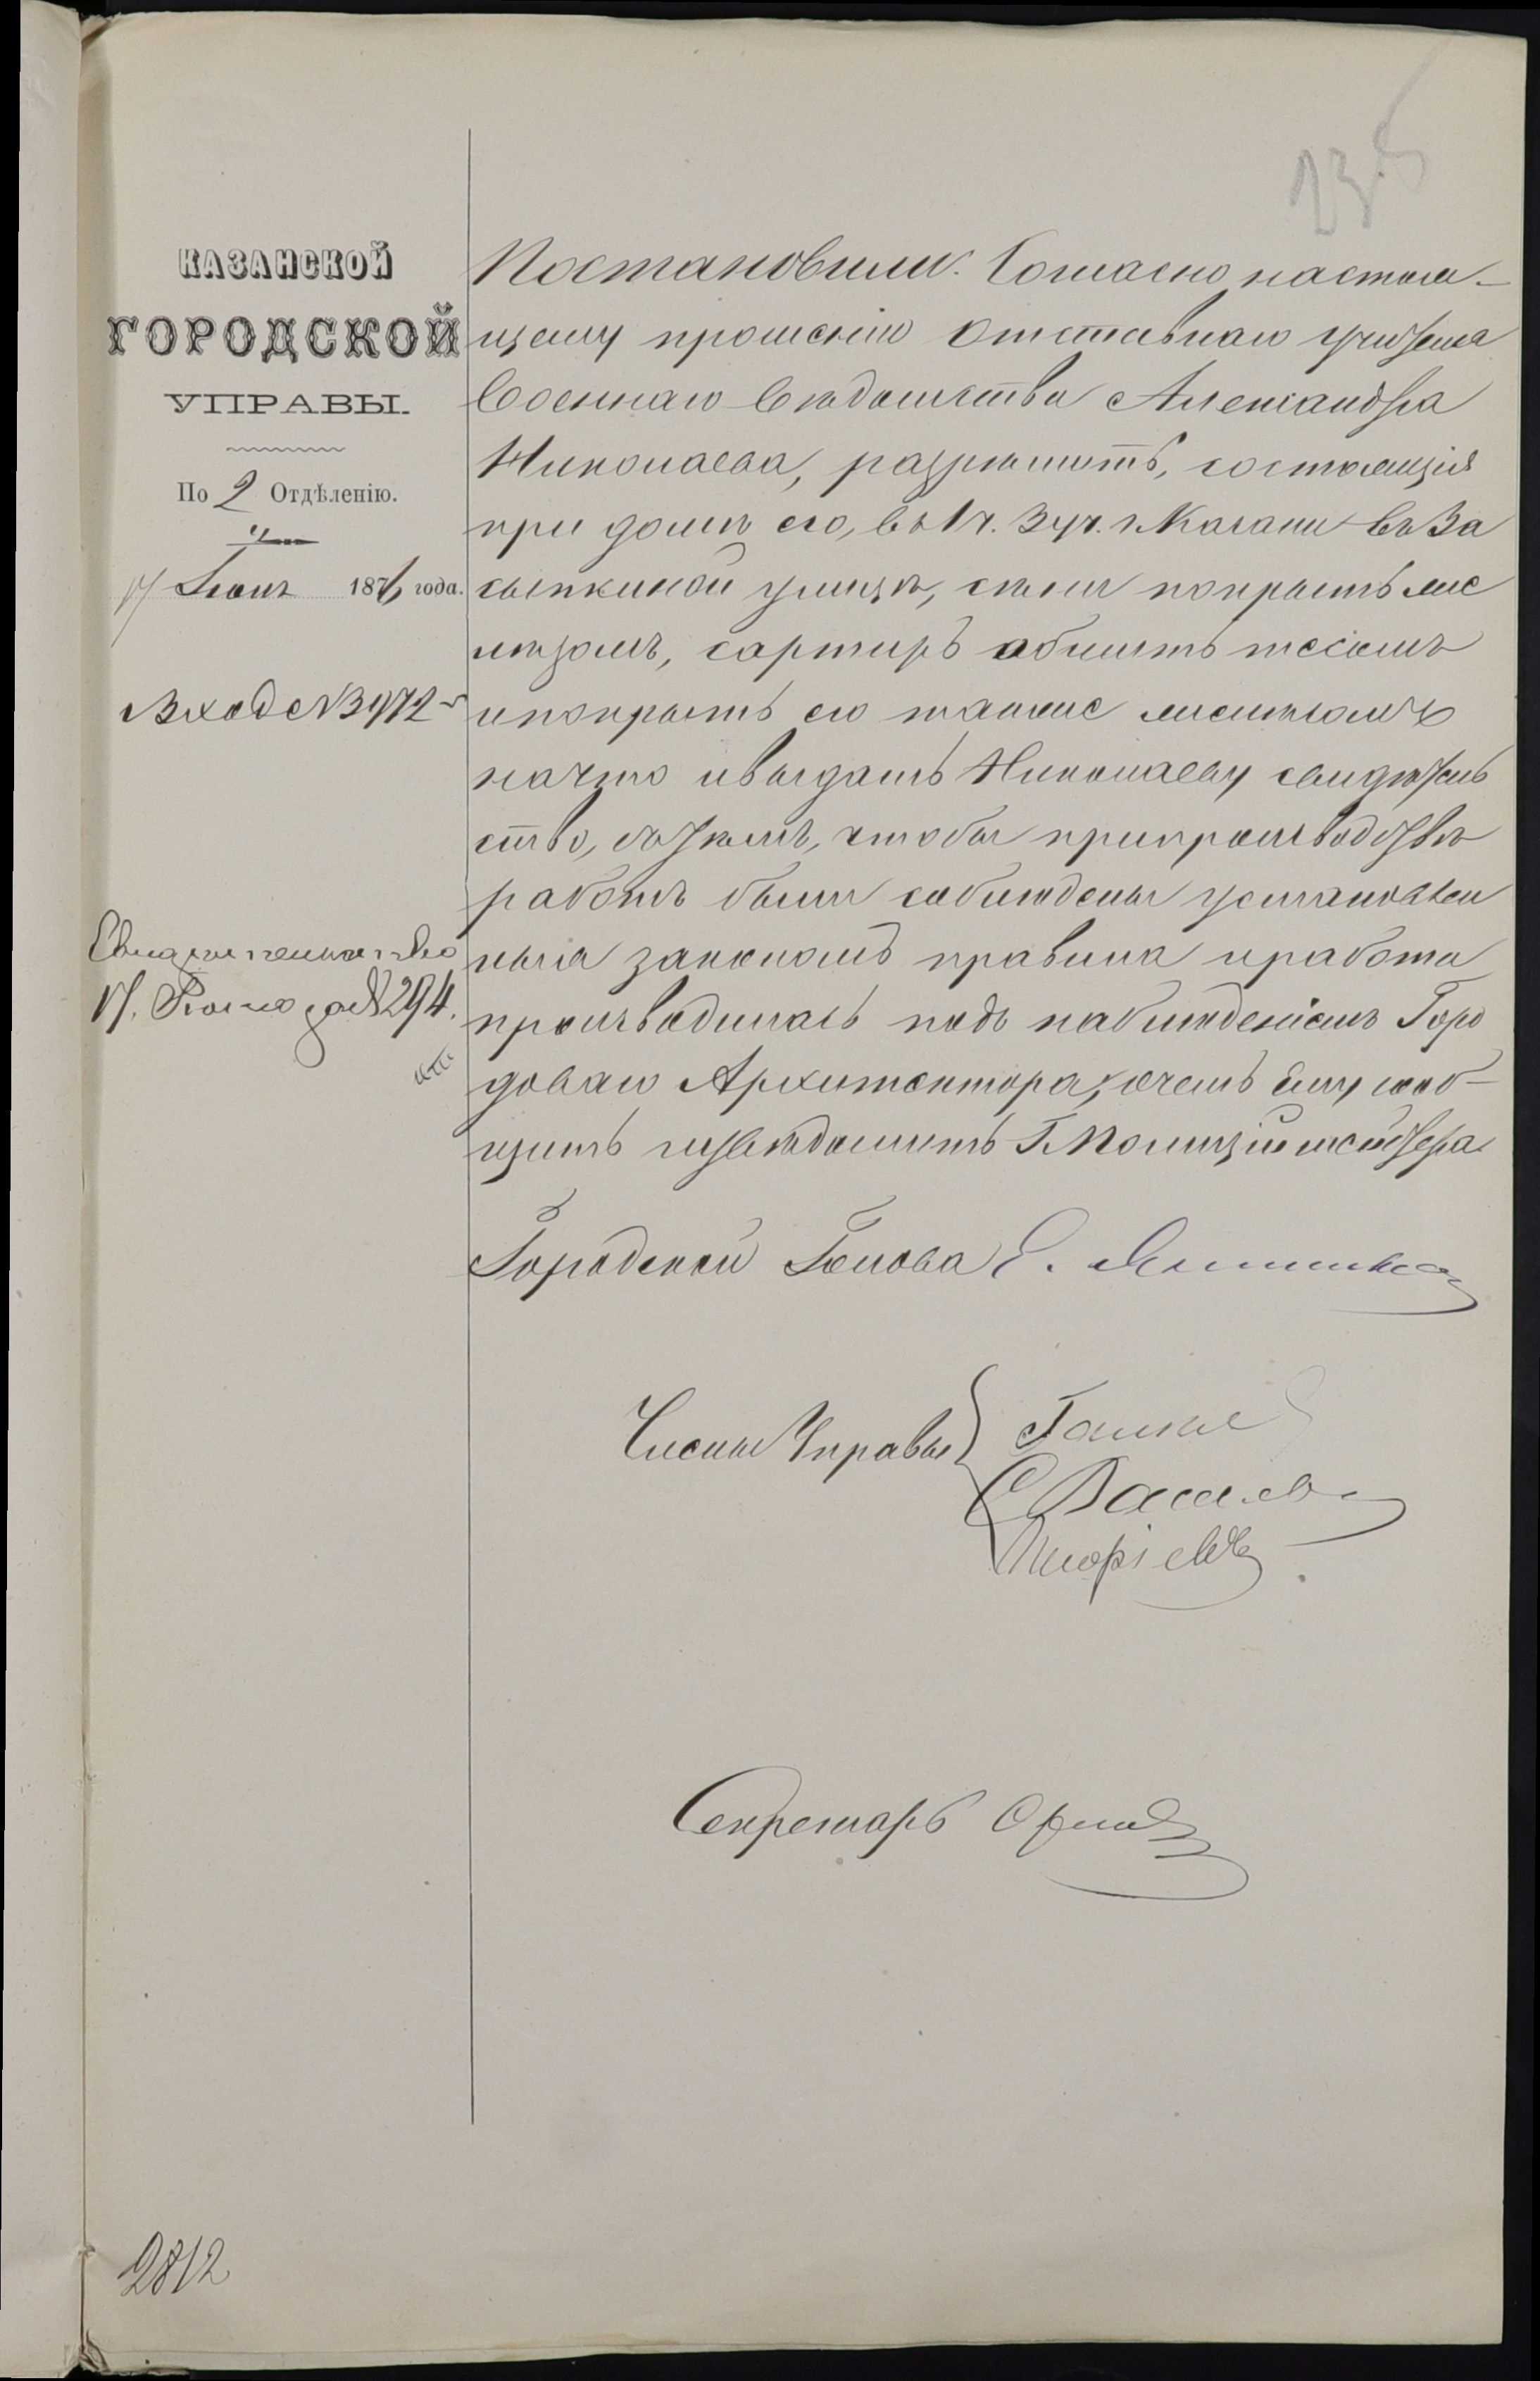 КАЗАНСКОЙ
ГОРОДСКОЙ
УПРАВЫ.
По 2 Отдѣленію.
17 Іюня 1876 года.
Вход № 3972
Свидѣтельство
17. Іюня за № 294.
Постановили: Согласно настоя-
щему прошенію отставнаго учителя
Военнаго вѣдомства Александра
Николаева, разрѣшить, состоящія
при домѣ его, въ 1 ч. 3 уч. г. Казани въ За
сыпкиной улицѣ, сѣни покрыть же
лѣзомъ, сортиръ обшить тесомъ
и покрыть его также желѣзомъ
на что и выдать Николаеву свидѣтель
ство, съ тѣмъ, чтобы при производствѣ
работъ были соблюдены установлен
ныя закономъ правила и работа
производилась подъ наблюденіемъ Горо
доваго Архитектора, о чемъ ему сооб-
щить и увѣдомить Г. Полиціймейстера
Городской Голова Е.
Члены Управы
С Васильев
Секретарь
2812